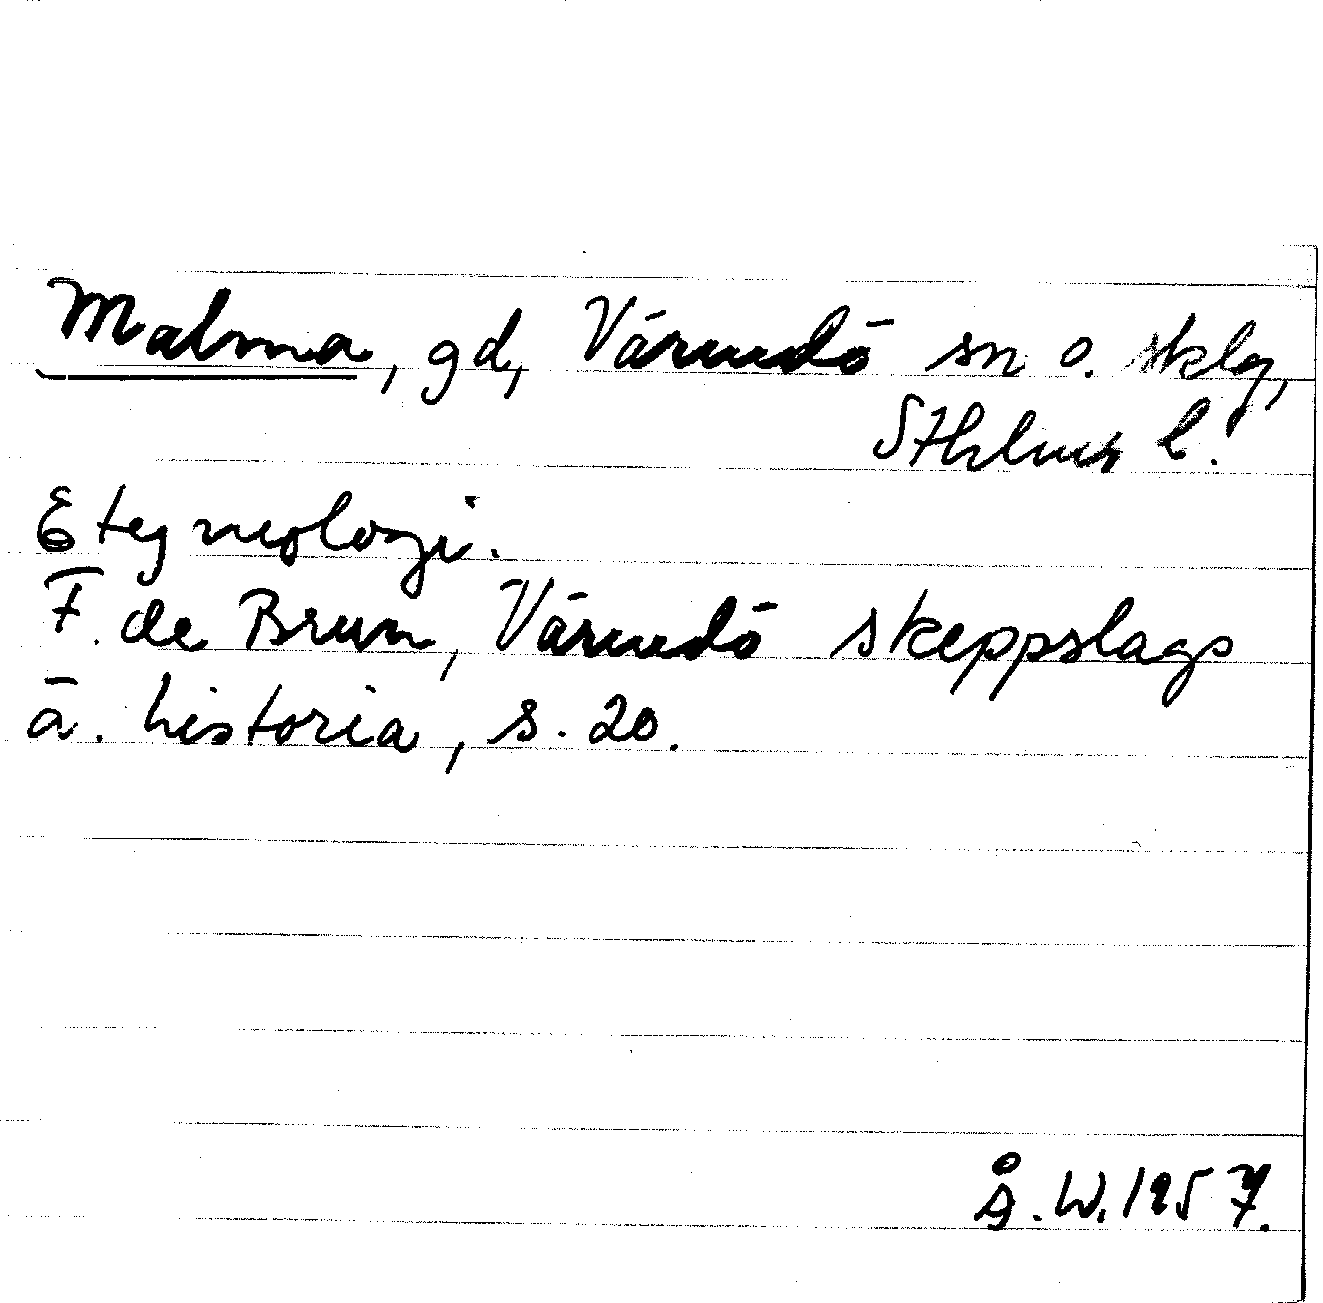 Malma, gd, Värmdö sn o. sklg,
Sthlms l.
Etymologi.
F. de Brun, Värmdö skeppslags
ä. historia, s. 20.
Å.W. 1957.